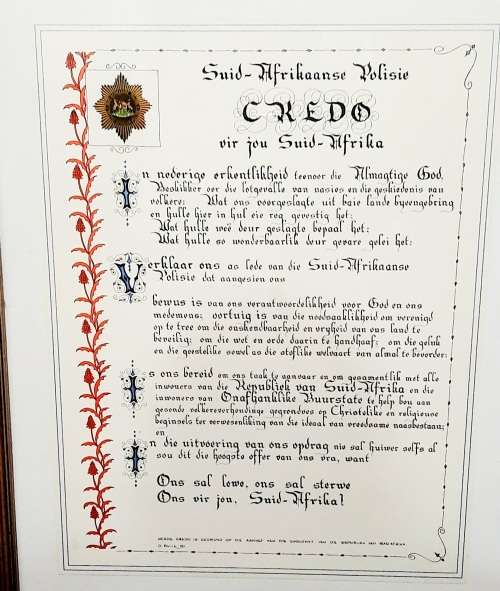 Suid-Afrikaanse Polisie
CREDO
vir jou Suid-Afrika
In nederige erkentlikheid teenoor die Almagtige God,
Beskikker oor die lotgevalle van nasies en die geskiedenis van
volkere; Wat ons voorgeslagte uit baie lande byeengebring
en hulle hier in hul eie reg gevestig het;
Wat hulle weë deur geslagte bepaal het;
Wat hulle so wonderbaarlik deur gevare gelei het;
Verklaar ons as lede van die Suid-Afrikaanse
Polisie dat aangesien ons
bewus is van ons verantwoordelikheid voor God en ons
medemens; oortuig is van die noodsaaklikheid om verenigd
op te tree om die onskendbaarheid en vryheid van ons land te
beveilig; om die wet en orde daarin te handhaaf; om die geluk
en die geestelike sowel as die stoflike welvaart van almal te bevorder;
Is ons bereid om ons taak te aanvaar en om gesamentlik met alle
inwoners van die Republiek van Suid-Afrika en die
inwoners van Onafhanklike Buurstate te help bou aan
gesonde volkereverhoudinge gegrondves op Christelike en religieuse
beginsels ter verwesenliking van die ideaal van vreedsame naasbestaan;
en
In die uitvoering van ons opdrag nie sal huiwer selfs al
sou dit die hoogste offer van ons vra, want
Ons sal lewe, ons sal sterwe
Ons vir jou, Suid-Afrika!
HIERDIE CREDO IS GEGROND OP DIE AANHEF VAN DIE GRONDWET VAN DIE REPUBLIEK VAN SUID-AFRIKA